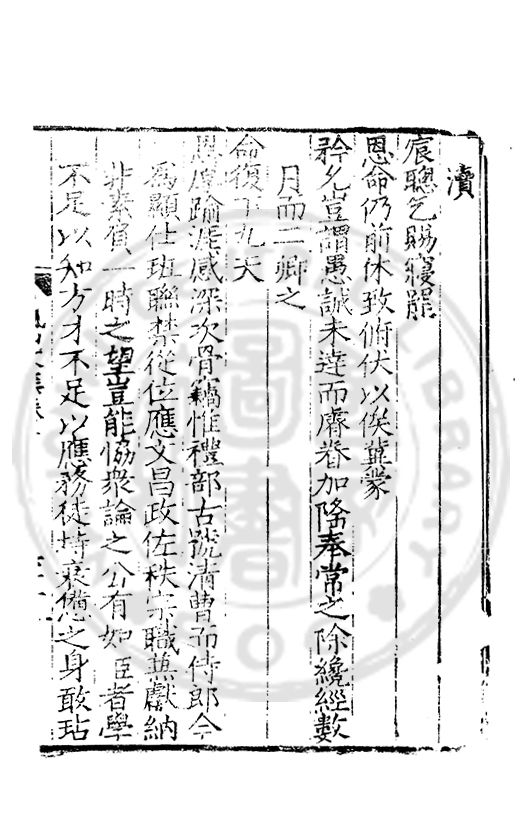 瀆
宸聰乞賜寢罷
恩命仍前休致俯伏以俟冀蒙
矜允豈謂愚誠未達而睿眷加隆奉常之除纔經數
月而二卿之
命復下九天
恩厚踰涯感深次骨竊惟禮部古號清曹而侍郎今
為顯仕班聯禁從位應文昌政佐秩宗職兼獻納
非素負一時之望豈能恊衆論之公有如臣者學
不足以知方才不足以應務徒持衰憊之身敢玷